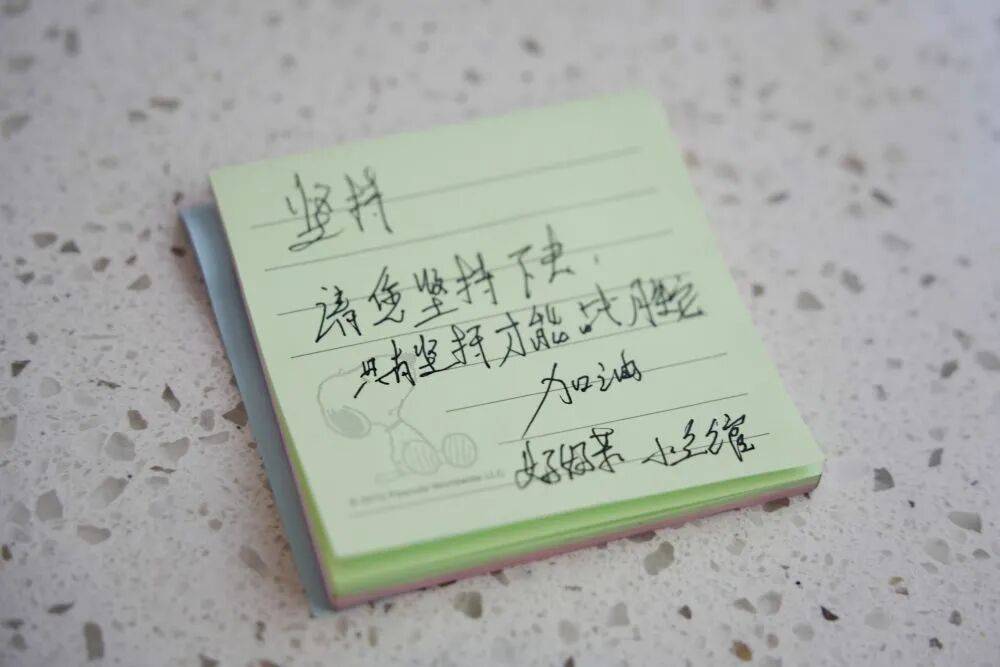 坚持
请您坚持下去.
只有坚持才能战胜
加油
好好
Peanuts Worldwide LLC